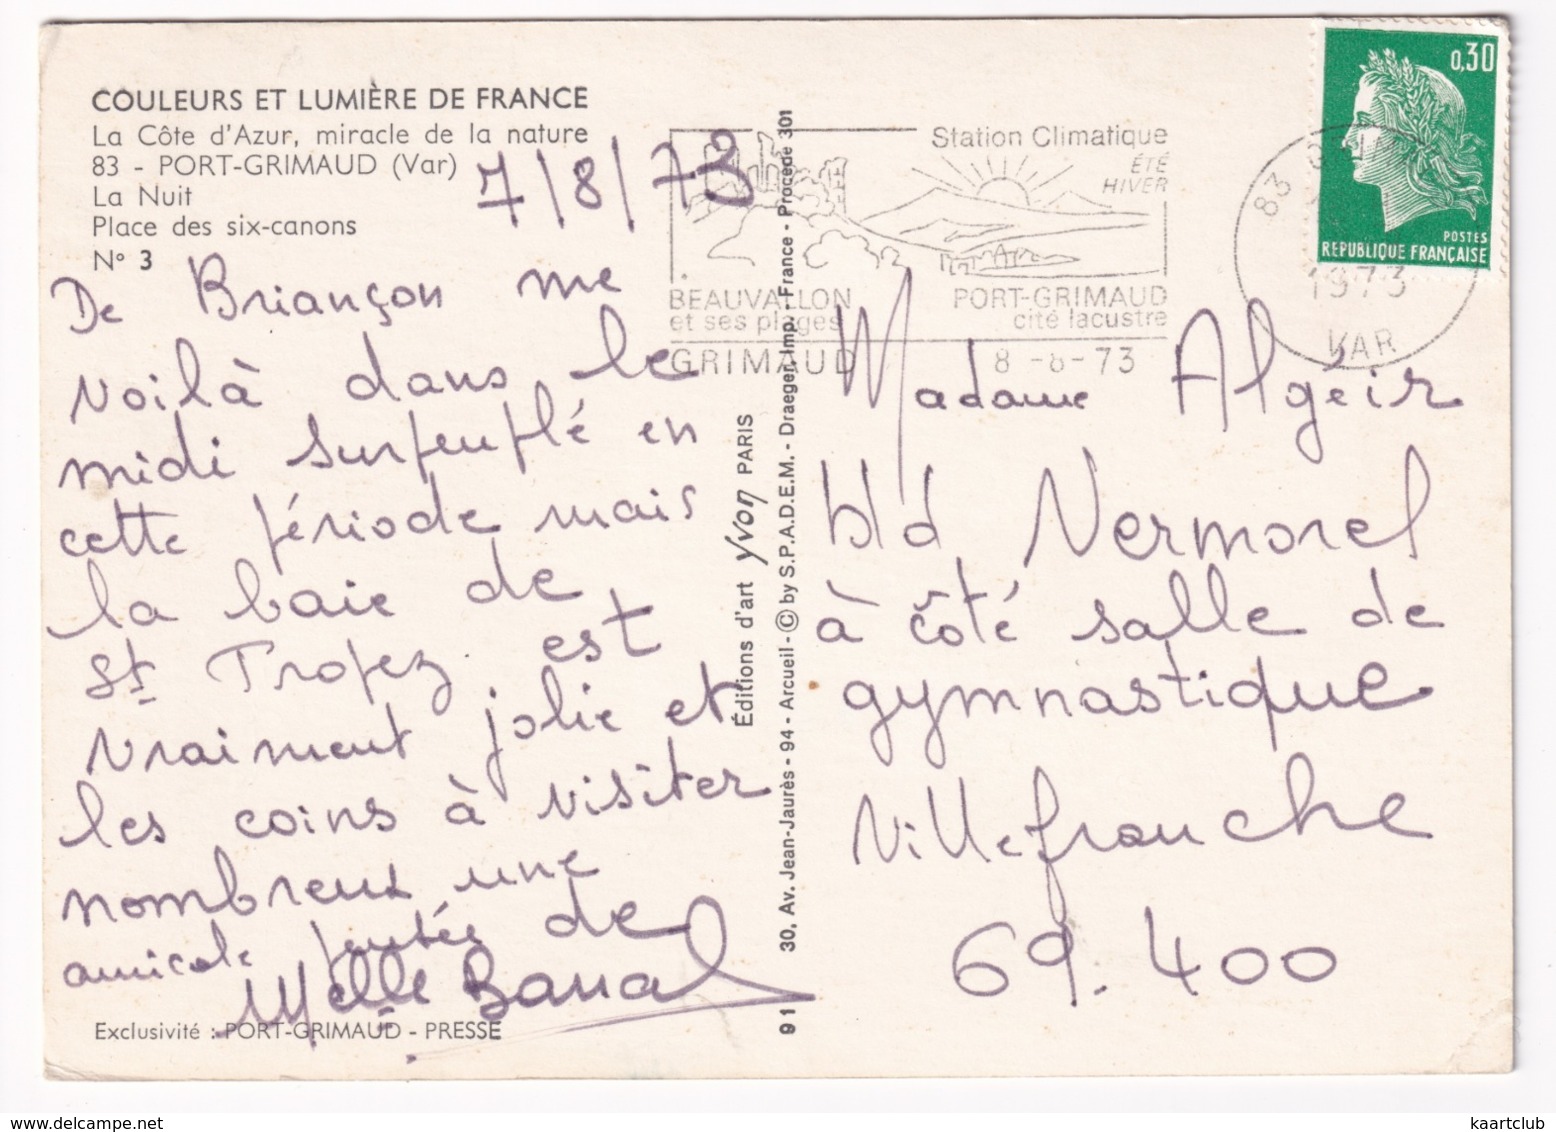 COULEURS ET LUMIÈRE DE FRANCE
La Côte d'Azur, miracle de la nature
83 - PORT-GRIMAUD (Var)
La Nuit
Place des six-canons
N° 3
7/8/73
De Briançon me
voilà dans le
midi surpeuplé en
cette période mais
la baie de
St Tropez est
vraiment jolie et
les coins à visiter
nombreux une
amicale pensée de
Melle
Exclusivité : PORT-GRIMAUD - PRESSE
Éditions d'art Yvon PARIS
30, Av. Jean-Jaurès - 94 - Arcueil - © by S.P.A.D.E.M. - Draeger, Imp. - France - Procédé 301
91
Station Climatique
ÉTÉ
HIVER
BEAUVALLON
et ses plages
PORT-GRIMAUD
cité lacustre
GRIMAUD 8-8-73
83
1973
VAR
0,30
POSTES
REPUBLIQUE FRANÇAISE
Madame Algéir
bld Vermorel
à côté salle de
gymnastique
Villefranche
69.400
kaartclub